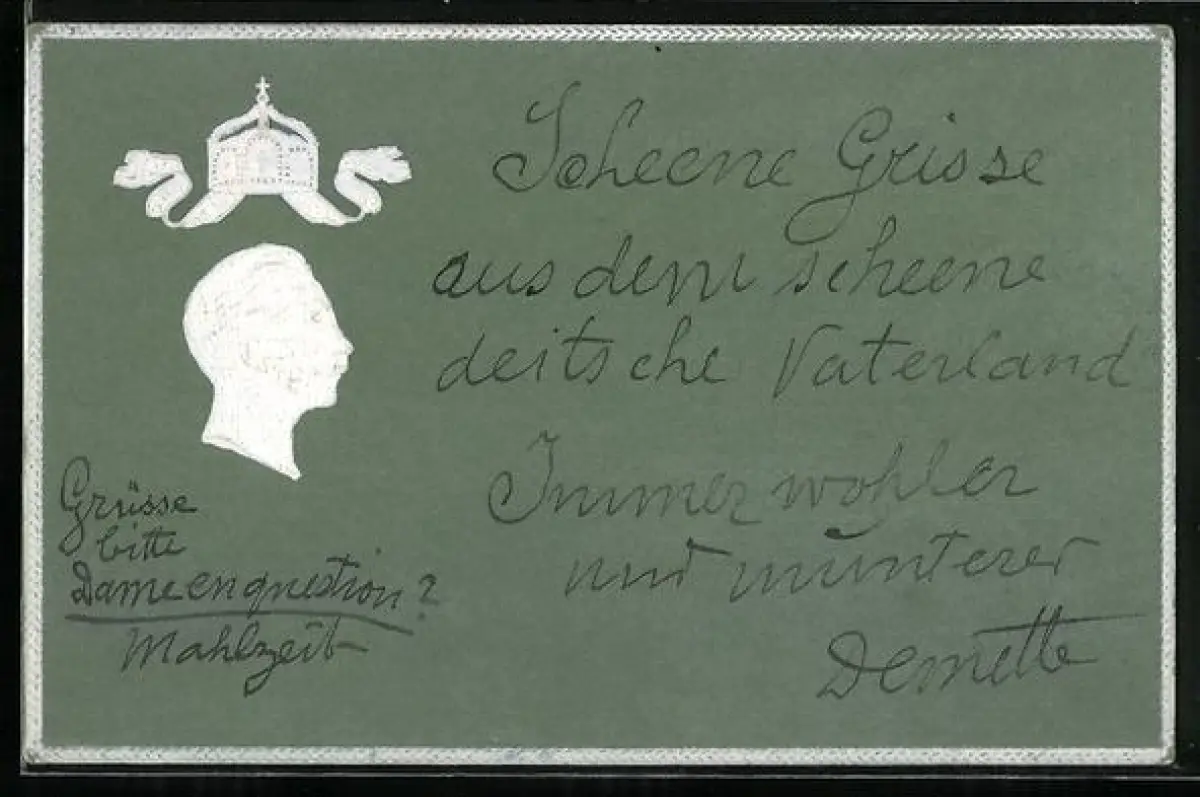 Scheene Grisse
aus dem scheene
deitsche Vaterland
Immer wohler
und munterer
Grüsse
bitte
Dame en question?
Mahlzeit